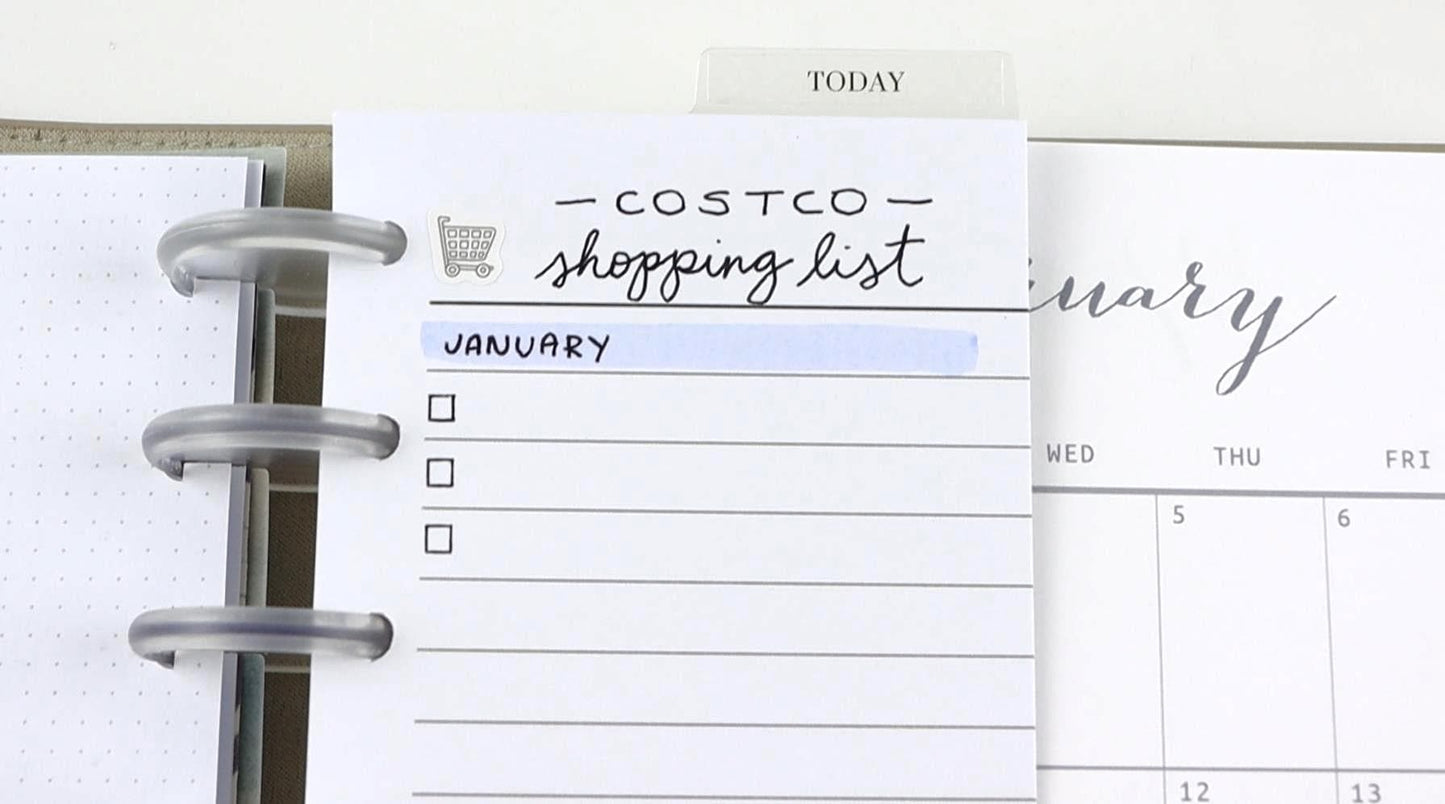 TODAY
— COSTCO —
shopping list
JANUARY
WED THU FRI
5 6
12 13